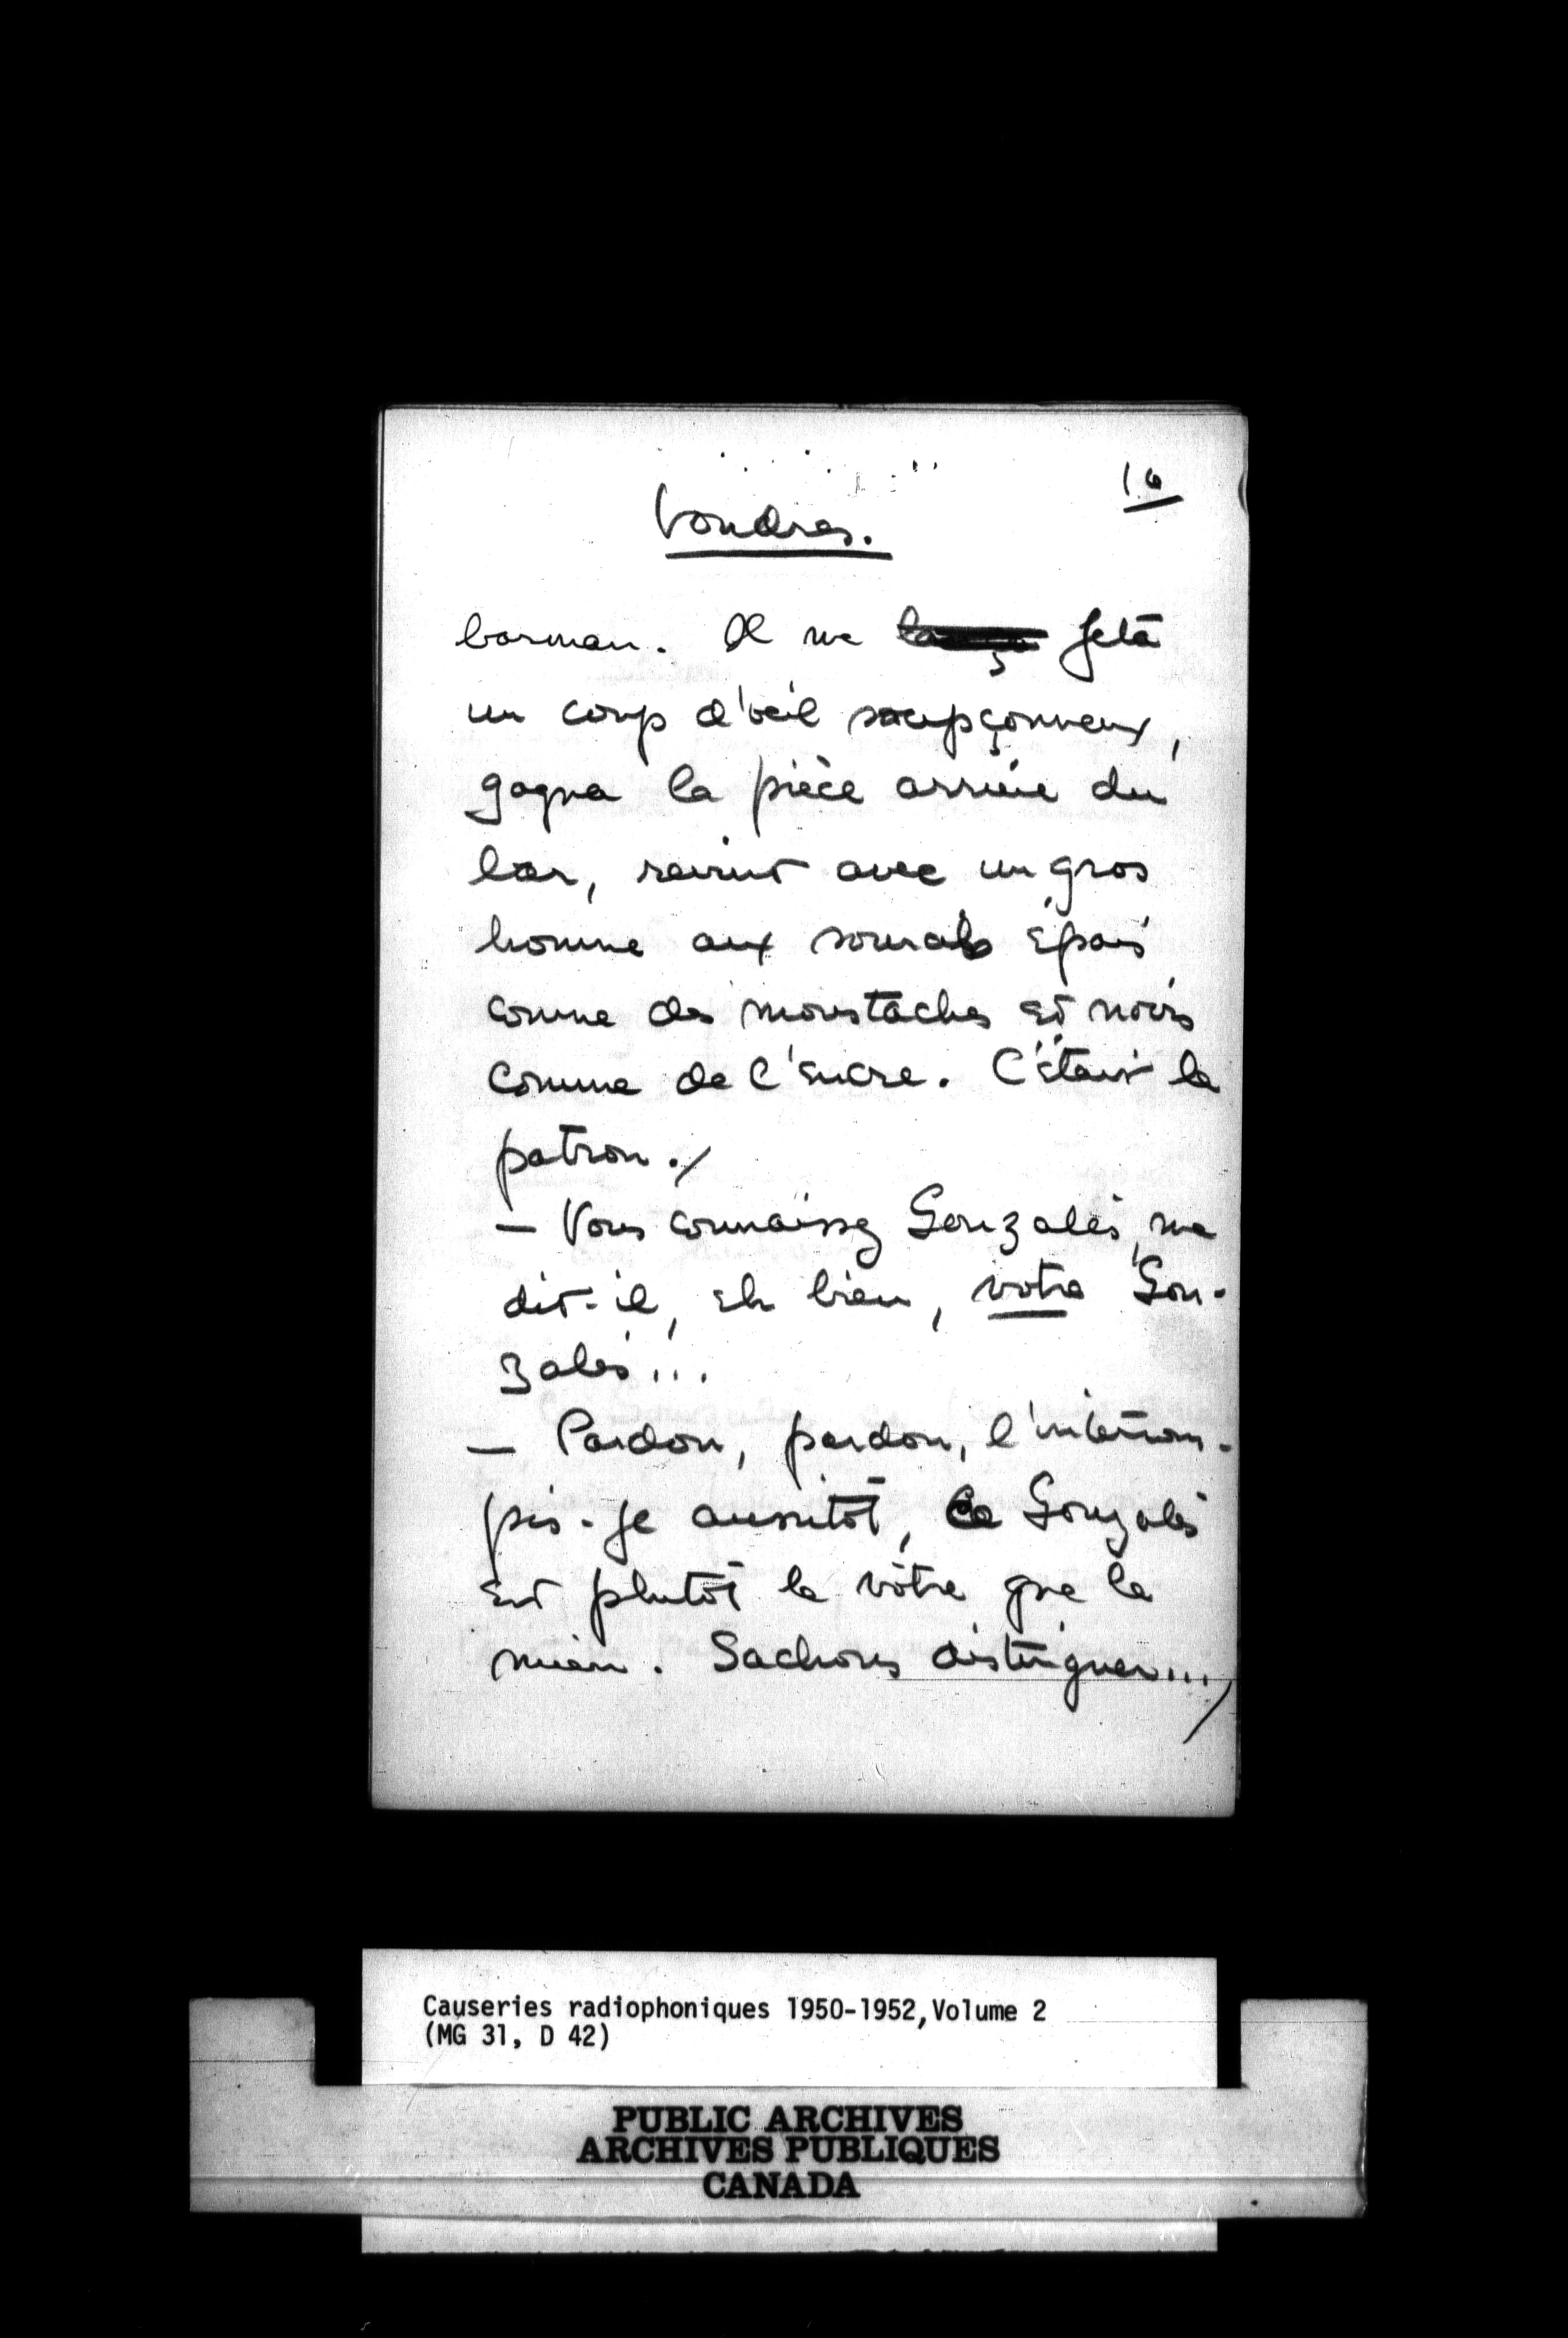 16
Londres.
barman. Il me jeta
un coup d'oeil soupçonneux,
gagna la pièce arrière du
bar, revint avec un gros
homme aux sourcils épais
comme des moustaches et noirs
comme de l'encre. C'était le
patron./
— Vous connaissez Gonzalès, me
dit-il, eh bien, votre Gon-
zalès...
— Pardon, pardon, l'interrom-
pis-je aussitôt, ce Gonzalès
est plutôt le vôtre que le
mien. Sachons distinguer.../
Causeries radiophoniques 1950-1952, Volume 2
(MG 31, D 42)
PUBLIC ARCHIVES
ARCHIVES PUBLIQUES
CANADA